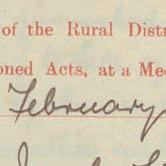 of the Rural Distr
oned Acts, at a Me
February